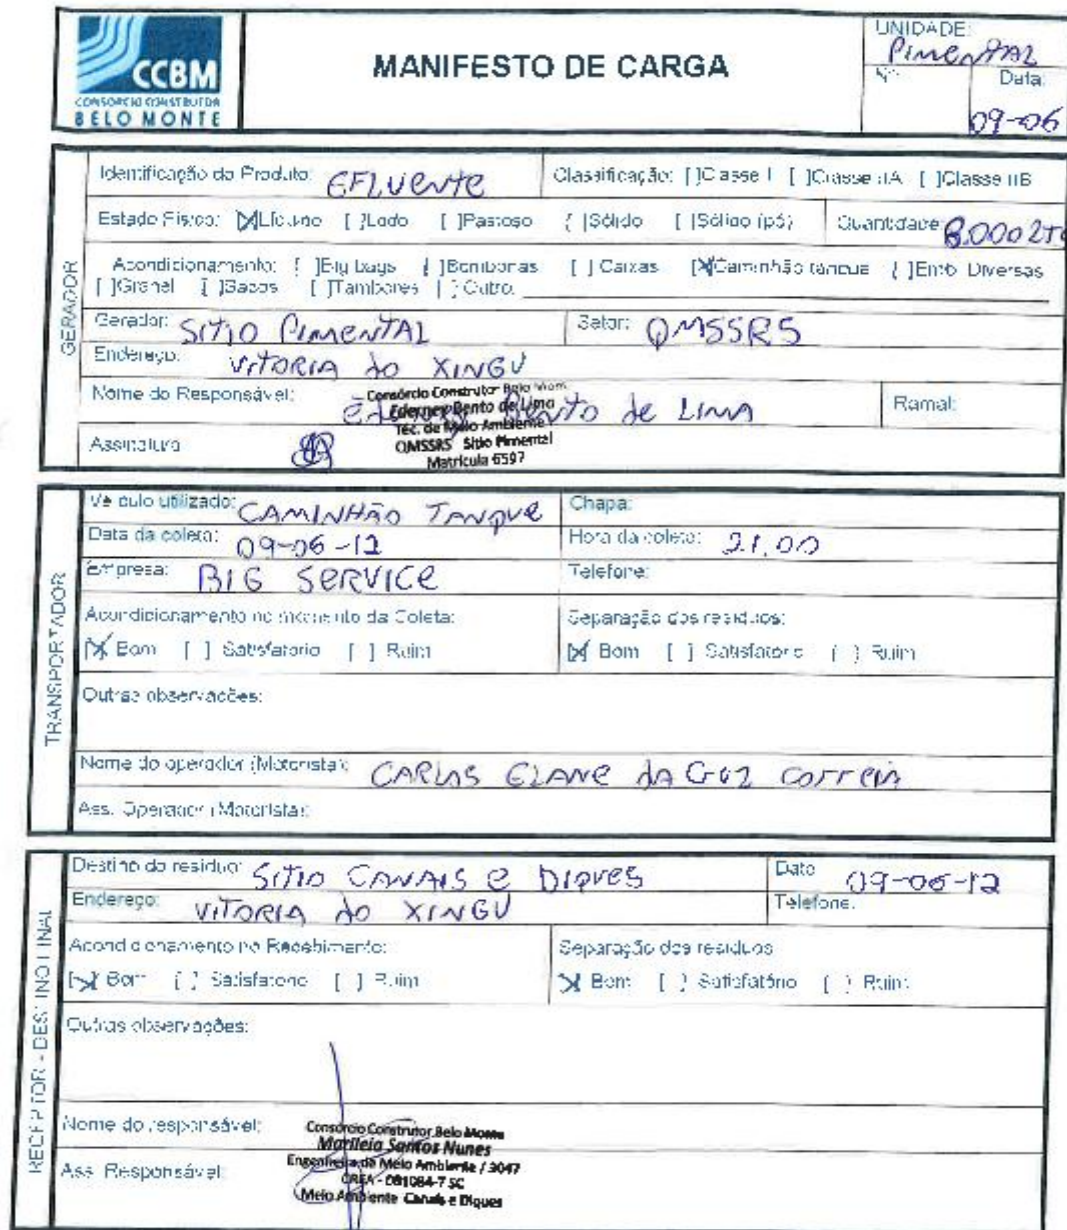 CCBM
CONSÓRCIO CONSTRUTOR
BELO MONTE
MANIFESTO DE CARGA
UNIDADE:
Pimental
Nº
Data:
09-06
GERADOR
Identificação do Produto: EFLUENTE
Classificação: [ ]Classe I [ ]Classe IIA [ ]Classe IIB
Estado Físico: [X]Líquido [ ]Lodo [ ]Pastoso [ ]Sólido [ ]Sólido (pó)
Quantidade: 8.000
Acondicionamento: [ ]Big bags [ ]Bombonas [ ]Caixas [X]Caminhão tanque [ ]Emb. Diversas
[ ]Granel [ ]Sacos [ ]Tambores [ ] Outro:
Gerador: SITIO PIMENTAL
Setor: QMSSRS
Endereço: VITORIA do XINGU
Nome do Responsável: Bento de LIMA
Ramal:
Consórcio Construtor Belo Mon
Ederney Bento de Lima
Téc. de Meio Ambiente
QMSSRS Sitio Pimental
Matrícula 6597
Assinatura
TRANSPORTADOR
Veículo utilizado: CAMINHÃO TANQUE
Chapa:
Data da coleta: 09-06-12
Hora da coleta: 21,00
Empresa: BIG SERVICE
Telefone:
Acondicionamento no momento da Coleta:
Separação dos resíduos:
[X] Bom [ ] Satisfatório [ ] Ruim
[X] Bom [ ] Satisfatório [ ] Ruim
Outras observações:
Nome do operador (Motorista): CARLOS da Correia
Ass. Operador (Motorista):
RECEPTOR - DESTINO FINAL
Destino do resíduo: SITIO CANAIS e DIQUES
Data 09-06-12
Endereço: VITORIA do XINGU
Telefone:
Acondicionamento no Recebimento:
Separação dos resíduos
[X] Bom [ ] Satisfatório [ ] Ruim
[X] Bom [ ] Satisfatório [ ] Ruim
Outras observações:
Nome do responsável:
Consórcio Construtor Belo Monte
Marileia Santos Nunes
Engenheira de Meio Ambiente / 3047
CREA - 081084-7 SC
Meio Ambiente Canais e Diques
Ass. Responsável: